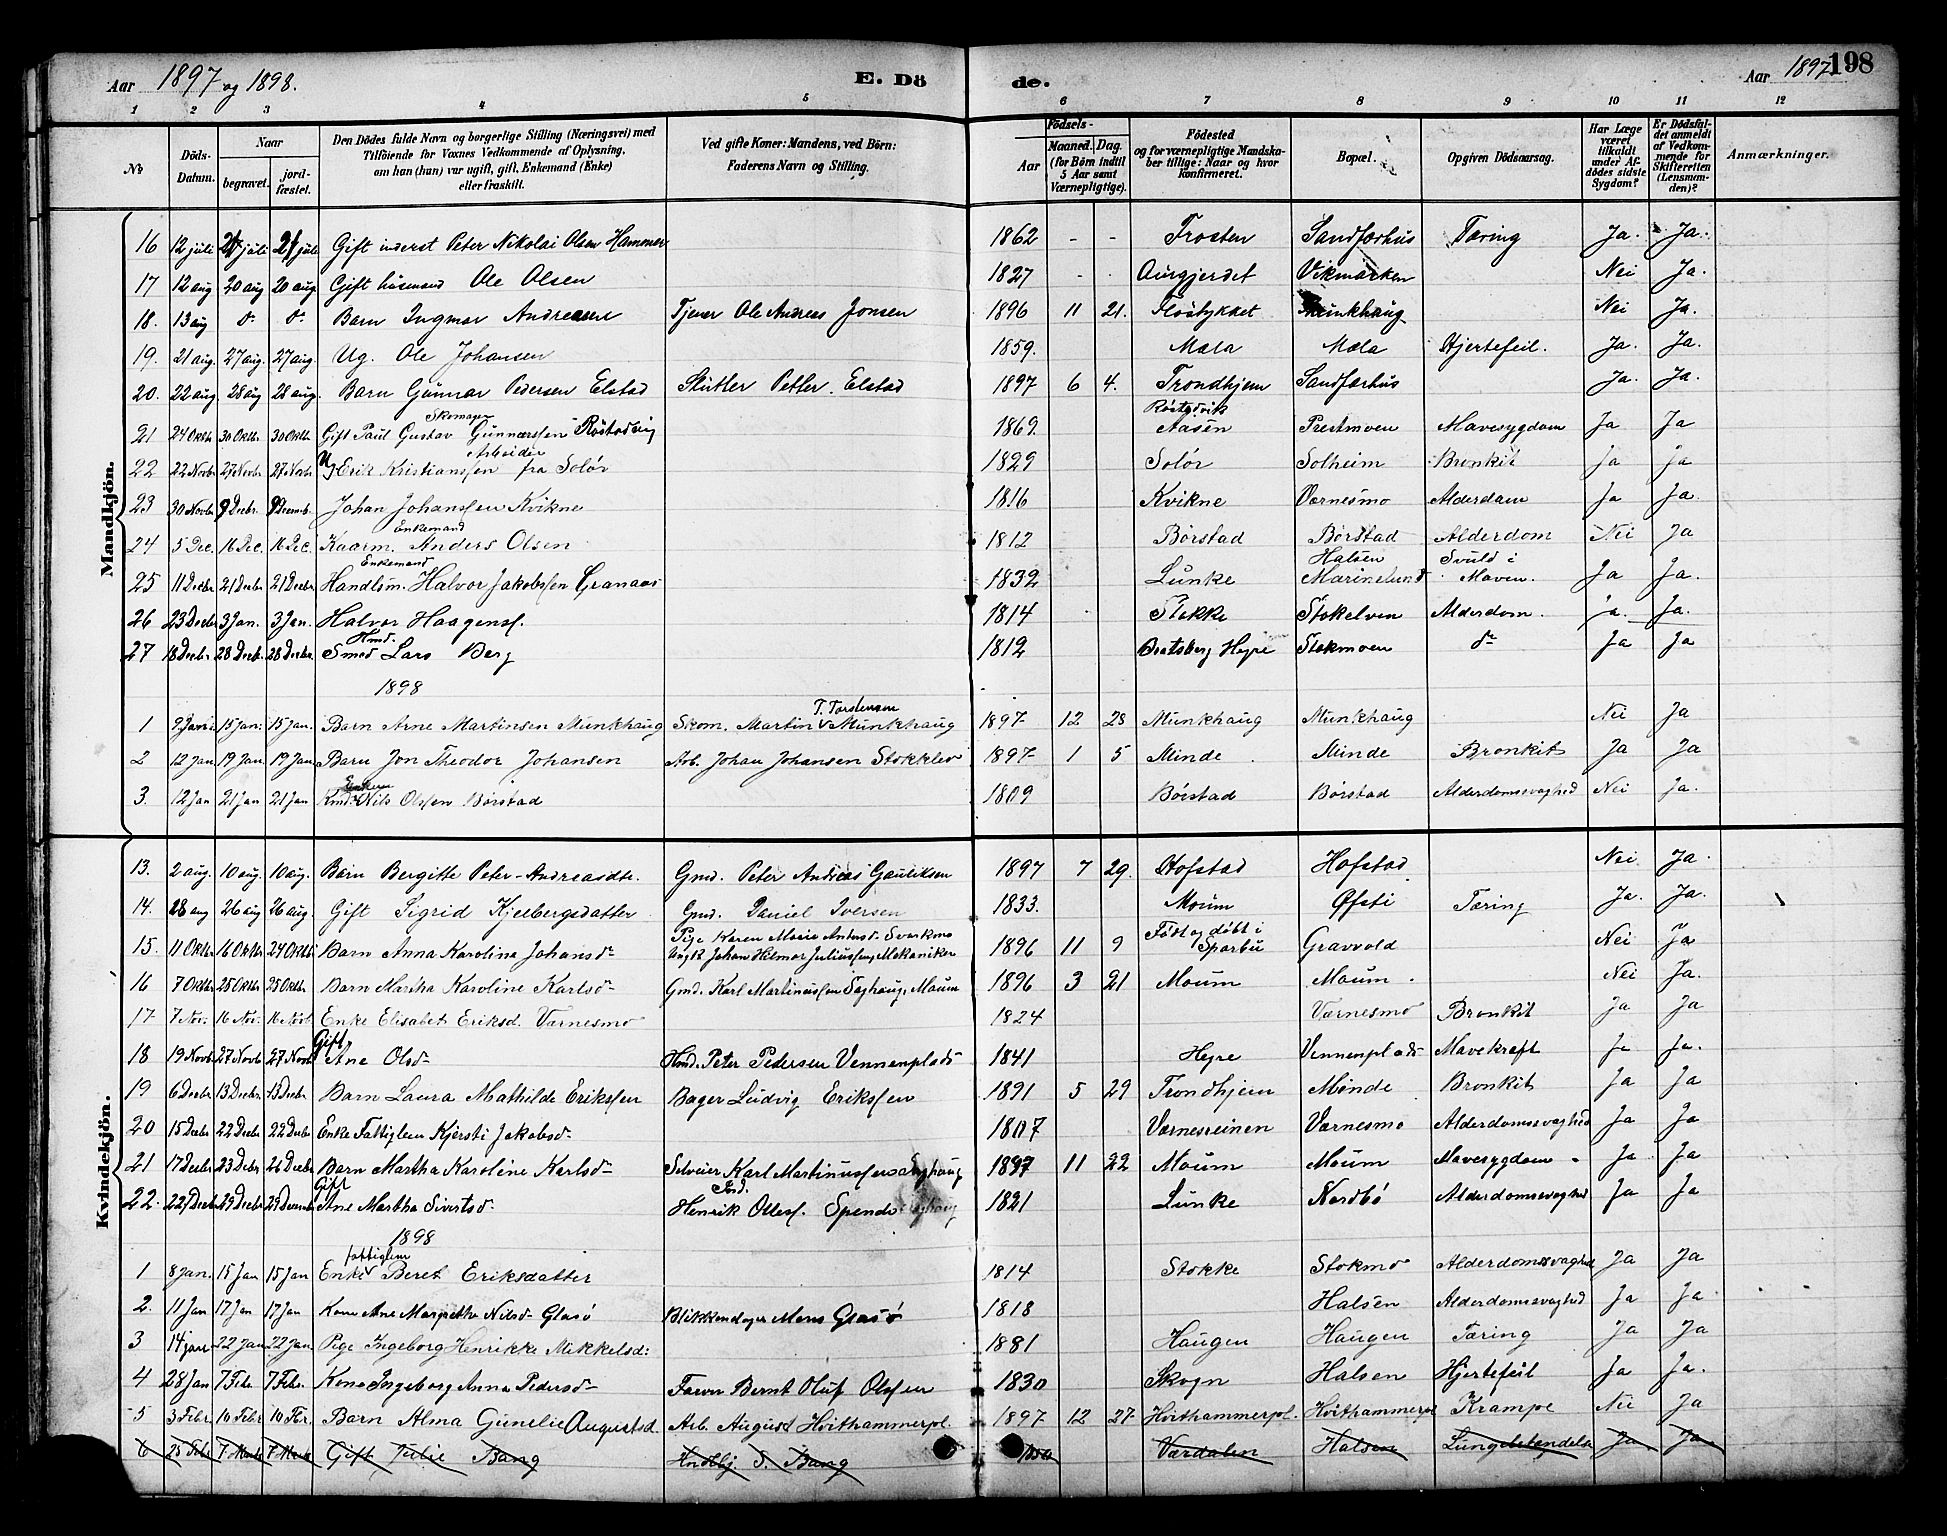 Aar 1897 og 1898. E. Dö de. Aar 1897. 198
1 2 3 4 5 6 7 8 9 10 11 12
№ Döds-Datum. Naar begravet. jord-fæstet. Den Dödes fulde Navn og borgerlige Stilling (Næringsvei) med Tilföiende for Voxnes Vedkommende af Oplysning, om han (hun) var ugift, gift, Enkemand (Enke) eller fraskilt. Ved gifte Koner: Mandens, ved Börn: Faderens Navn og Stilling. Födsels- Aar Maaned. Dag. (for Börn indtil 5 Aar samt Værnepligtige). Födested og for værnepligtige Mandska-ber tillige: Naar og hvor Konfirmeret. Bopæl. Opgiven Dödsaarsag. Har Læge været tilkaldt under Af-dödes sidste Sygdom? Er Dödsfal-det anmeldt af Vedkom-mende for Skifteretten (Lensman-den)? Anmærkninger.
Mandkjön.
16 12 juli 21 juli 21 juli Gift inderst Peter Nikolai Olsen Hammer 1862 - - Frosten Sandfærhus Tæring Ja. Ja.
17 12 aug 20 aug 20 aug. Gift husmand Ole Olsen 1827 - - Aurgjerdet Vikmarken Nei Ja.
18. 13 aug do do Barn Ingmar Andreasen Tjener Ole Andreas Jonsen 1896 11 21. Flöstykket Munkhaug Nei Ja.
19. 21 aug. 27 aug. 27 aug. Ug. Ole Johansen 1859. Mæla Mæla Hjertefeil. Ja. Ja.
20. 22 aug. 28 aug 28 aug. Barn Gunnar Pedersen Elstad Skutler Petter. Elstad 1897 6 4. Trondhjem Sandfærhus Ja. Ja.
Skomager Röstadvik
21 24 Oktb. 30 Oktb. 30 Oktb. Gift Paul Gustav Gunnerssen Röstadvig 1869. Aasen Prestmoen Mavesygdom Ja Ja
Arbeider
22 22 Novb. 27 Novb. 27 Novb. Ug Erik Kristianssen fra Solör 1829 Solör Solheim Bronkit Ja Ja
23 30 Novb. 9 Decbr. 9 Decemb. Johan Johanssen Kvikne 1816 Kvikne Værnesmo Alderdom Ja Ja.
Enkemand
24 5 Dec. 16 Dec. 16 Dec. Kaarm. Anders Olsen 1812 Börstad Börstad Alderdom Nei Ja
Enkemand Halsen Svulst i
25 11 Decbr 21 Decbr 21 Decbr Handlsm. Halvor Jakobssen Granaas 1832 Lunke Marinelund Maven. Ja Ja.
26 23 Decbr 3 Jan. 3 Jan. Halvor Haagens. 1814 Stokke Stokelven Alderdom. Ja. Ja.
Hmd.
27 18 Decbr. 28 Decb. 28 Decbr. Smed Lars Berg 1812 Bratsberg Hegre Stokmoen do Ja Ja
1898
T. Torstensen
1 9 Jan. 15 Jan. 15 Jan. Barn Arne Martinsen Munkhaug Skom. Martin Munkhaug 1897 12 28 Munkhaug Munkhaug Nei Ja
2 12 Jan 19 Jan. 19 Jan Barn Jon Theodor Johansen Arb. Johan Johansen Stokklev 1897 1 5 Minde Minde Bronkit Ja Ja
3. 12 Jan 21 Jan 21 Jan Nils Olssen Börstad 1809 Börstad Börstad Alderdomssvaghed Nei Ja.
Kvindekjön.
13. 2 aug. 10 aug. 10 aug. Barn Bergitte Peter-Andreasdtr. Gmd. Peter Andreas Gauliksen 1897 7 29. Hofstad Hofstad Nei Ja.
14. 28 aug 26 aug 26 aug. Gift Sigrid Kjelbergsdatter Gmd. Daniel Iversen 1833. Moum Öfsti Tæring Ja. Ja.
Pige Karen Marie Andersd. Svarkmo Födt og döbt i
15. 11 Oktbr 16 Oktbr 24 Oktbr Barn Anna Karolina Johansd- Ungk Johan Hilmar Juliussen, Mekaniker 1896 11 9 Sparbu Gravvold Nei Ja
16 7 Oktbr 25 Oktbr 25 Oktbr Barn Martha Karoline Karlsd- Gmd. Karl Martinussen Saghaug, Moum 1896 3 21 Moum Moum. Nei Ja.
17 7 Nov. 16 Nov. 16 Nov. Enke Elisabet Eriksd. Værnesmo 1824 Værnesmo Bronkit Ja Ja
Gift
18 19 Novb. 27 Novb 27 Novb. Ane Olsd- Hmd. Peter Pedersen Vennenplads 1841 Hegre Vennenplads Mavekræft Ja Ja.
19 6 Decbr 13 Decbr. 13 Decbr Barn Laura Mathilde Erikssen Bager Ludvig Erikssen 1891 5 29 Trondhjem Minde Bronkit Ja Ja
20 15 Decbr 22 Decbr 22 Decbr Enke Fattiglem Kjersti Jakobsd- 1807 Værnesreinen Værnesmo Alderdomssvaghed Ja Ja
21 17 Decbr 23 Decbr 26 Decbr Barn Martha Karoline Karlsd- Selveier Karl Martinussen Saghaug 1897 11 22 Moum Moum Mavesygdom Ja Ja
Gift
22. 22 Decbr 29 Decbr 29 Decemb Ane Martha Sivertsd- Henrik Ollesf. Spends 1821 Lunke Nordbö Alderdomssvaghed Ja Ja
1898
fattiglem
1 8 Jan. 15 Jan 15 Jan Enke Beret Eriksdatter 1814 Stokke Stokmo Alderdomssvaghed Ja Ja
2. 11 Jan 17 Jan 17 Jan Kone Ane Margrethe Nilsd- Glasö Blikkenslager Mons Glasö 1818 Halsen Alderdomssvaghed Ja Ja
3 14 jan 22 Jan 22 Jan. Pige Ingeborg Henrikke Mikkelsd: 1881 Haugen Haugen Tæring Ja Ja
4 28 Jan 7 Febr. 7 Febr. Kone Ingeborg Anna Pedersd- Farver Bernt Oluf Olssen 1830 Skogn Halsen Hjertefeil Ja Ja.
5 3 Febr. 10 Febr 10 Fbr. Barn Alma Gunelie Augustsd. Arb. August Hvithammerpl. 1897 12 27 Hvithammerpl. Hvithammerpl Krampe Nei Ja
6 25 Febr 7. Marts 7. Marts Gift Julie Bang Handlb. S. Bang Værdalen Halsen Lungebetendelse Ja Ja